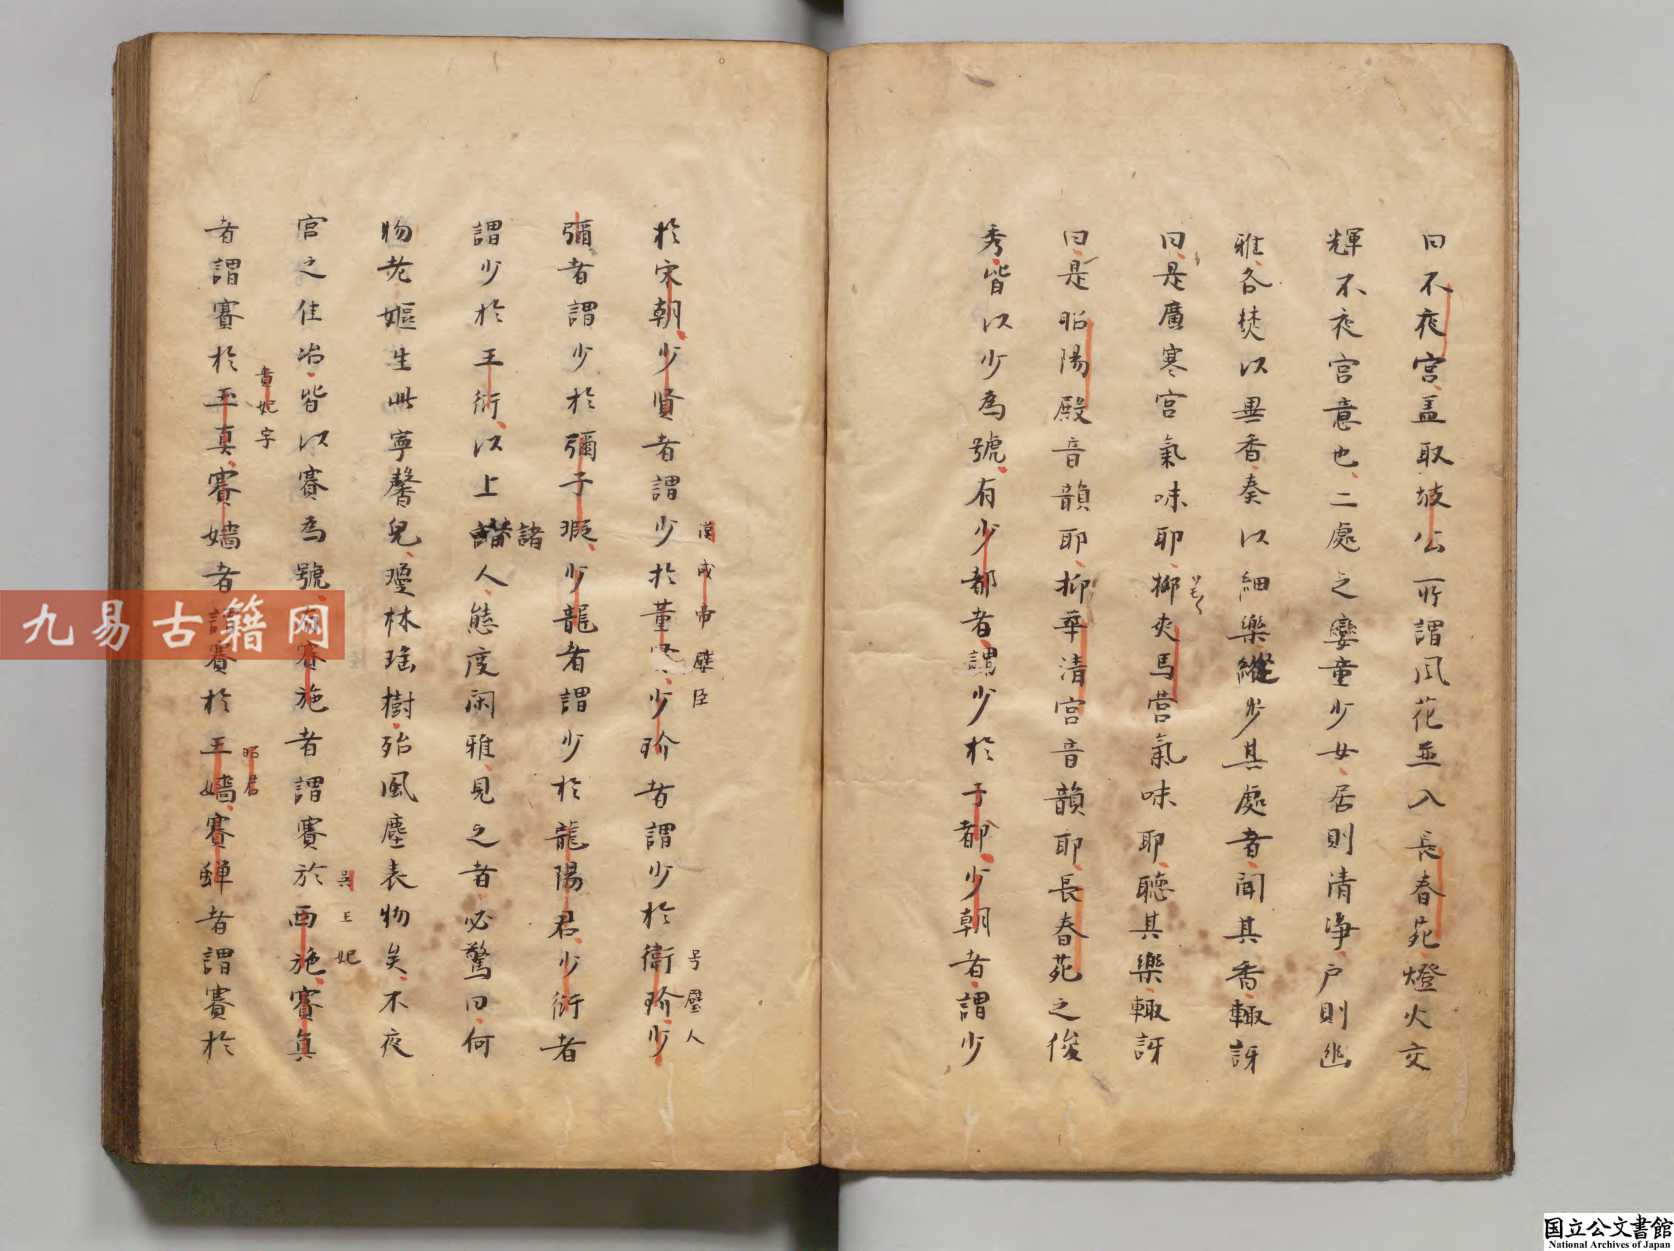 曰不夜宮盖取坡公所謂風花並入長春苑燈火交
輝不夜宮意也二處之孌童少女居則清淨戶則幽
雅各焚以異香奏以細樂縱步其處者聞其香輙訝
曰是廣寒宮氣味耶抑夾馬营氣味耶聽其樂輙訝
曰是昭陽殿音韻耶抑華清宮音韻耶長春苑之俊
秀皆以少為號有少都者謂少於子都少朝者謂少
於宋朝少賢者謂少於董賢少玠者謂少於衛玠少
漢成帝嬖臣
号璧人
彌者謂少於彌子瑕少龍者謂少於龍陽君少衍者
謂少於王衍以上諸人態度闲雅見之者必驚曰何
物老嫗生此寧馨兒瓊林瑶樹殆風塵表物矣不夜
宮之佳冶皆以賽為號有賽施者謂賽於西施賽真
吴王妃
者謂賽於玉真賽嬙者謂賽於王嬙賽蟬者謂賽於
貴妃字
昭君
九易古籍网
国立公文書館
National Archives of Japan